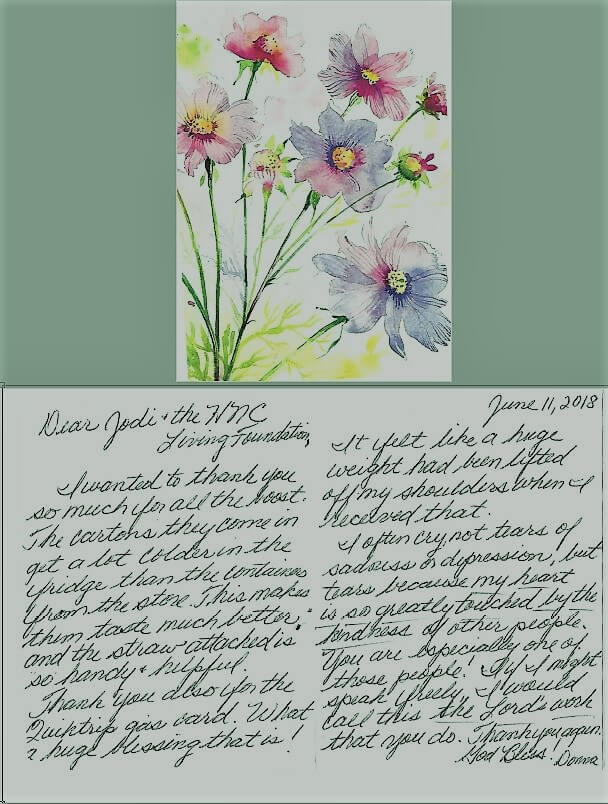 Dear Jodi & the HNC
Living Foundation,
I wanted to thank you
so much for all the boost.
The cartons they come in
get a lot colder in the
fridge than the containers
from the store. This makes
them taste much better,
and the straw attached is
so handy & helpful.
Thank you also for the
Quiktrip gas card. What
a huge blessing that is!
June 11, 2018
It felt like a huge
weight had been lifted
off my shoulders when I
received that.
I often cry, not tears of
sadness or depression, but
tears because my heart
is so greatly touched by the
kindness of other people.
You are especially one of
those people! If I might
speak freely, I would
call this the Lord's work
that you do. Thank you again.
God Bless! Donna